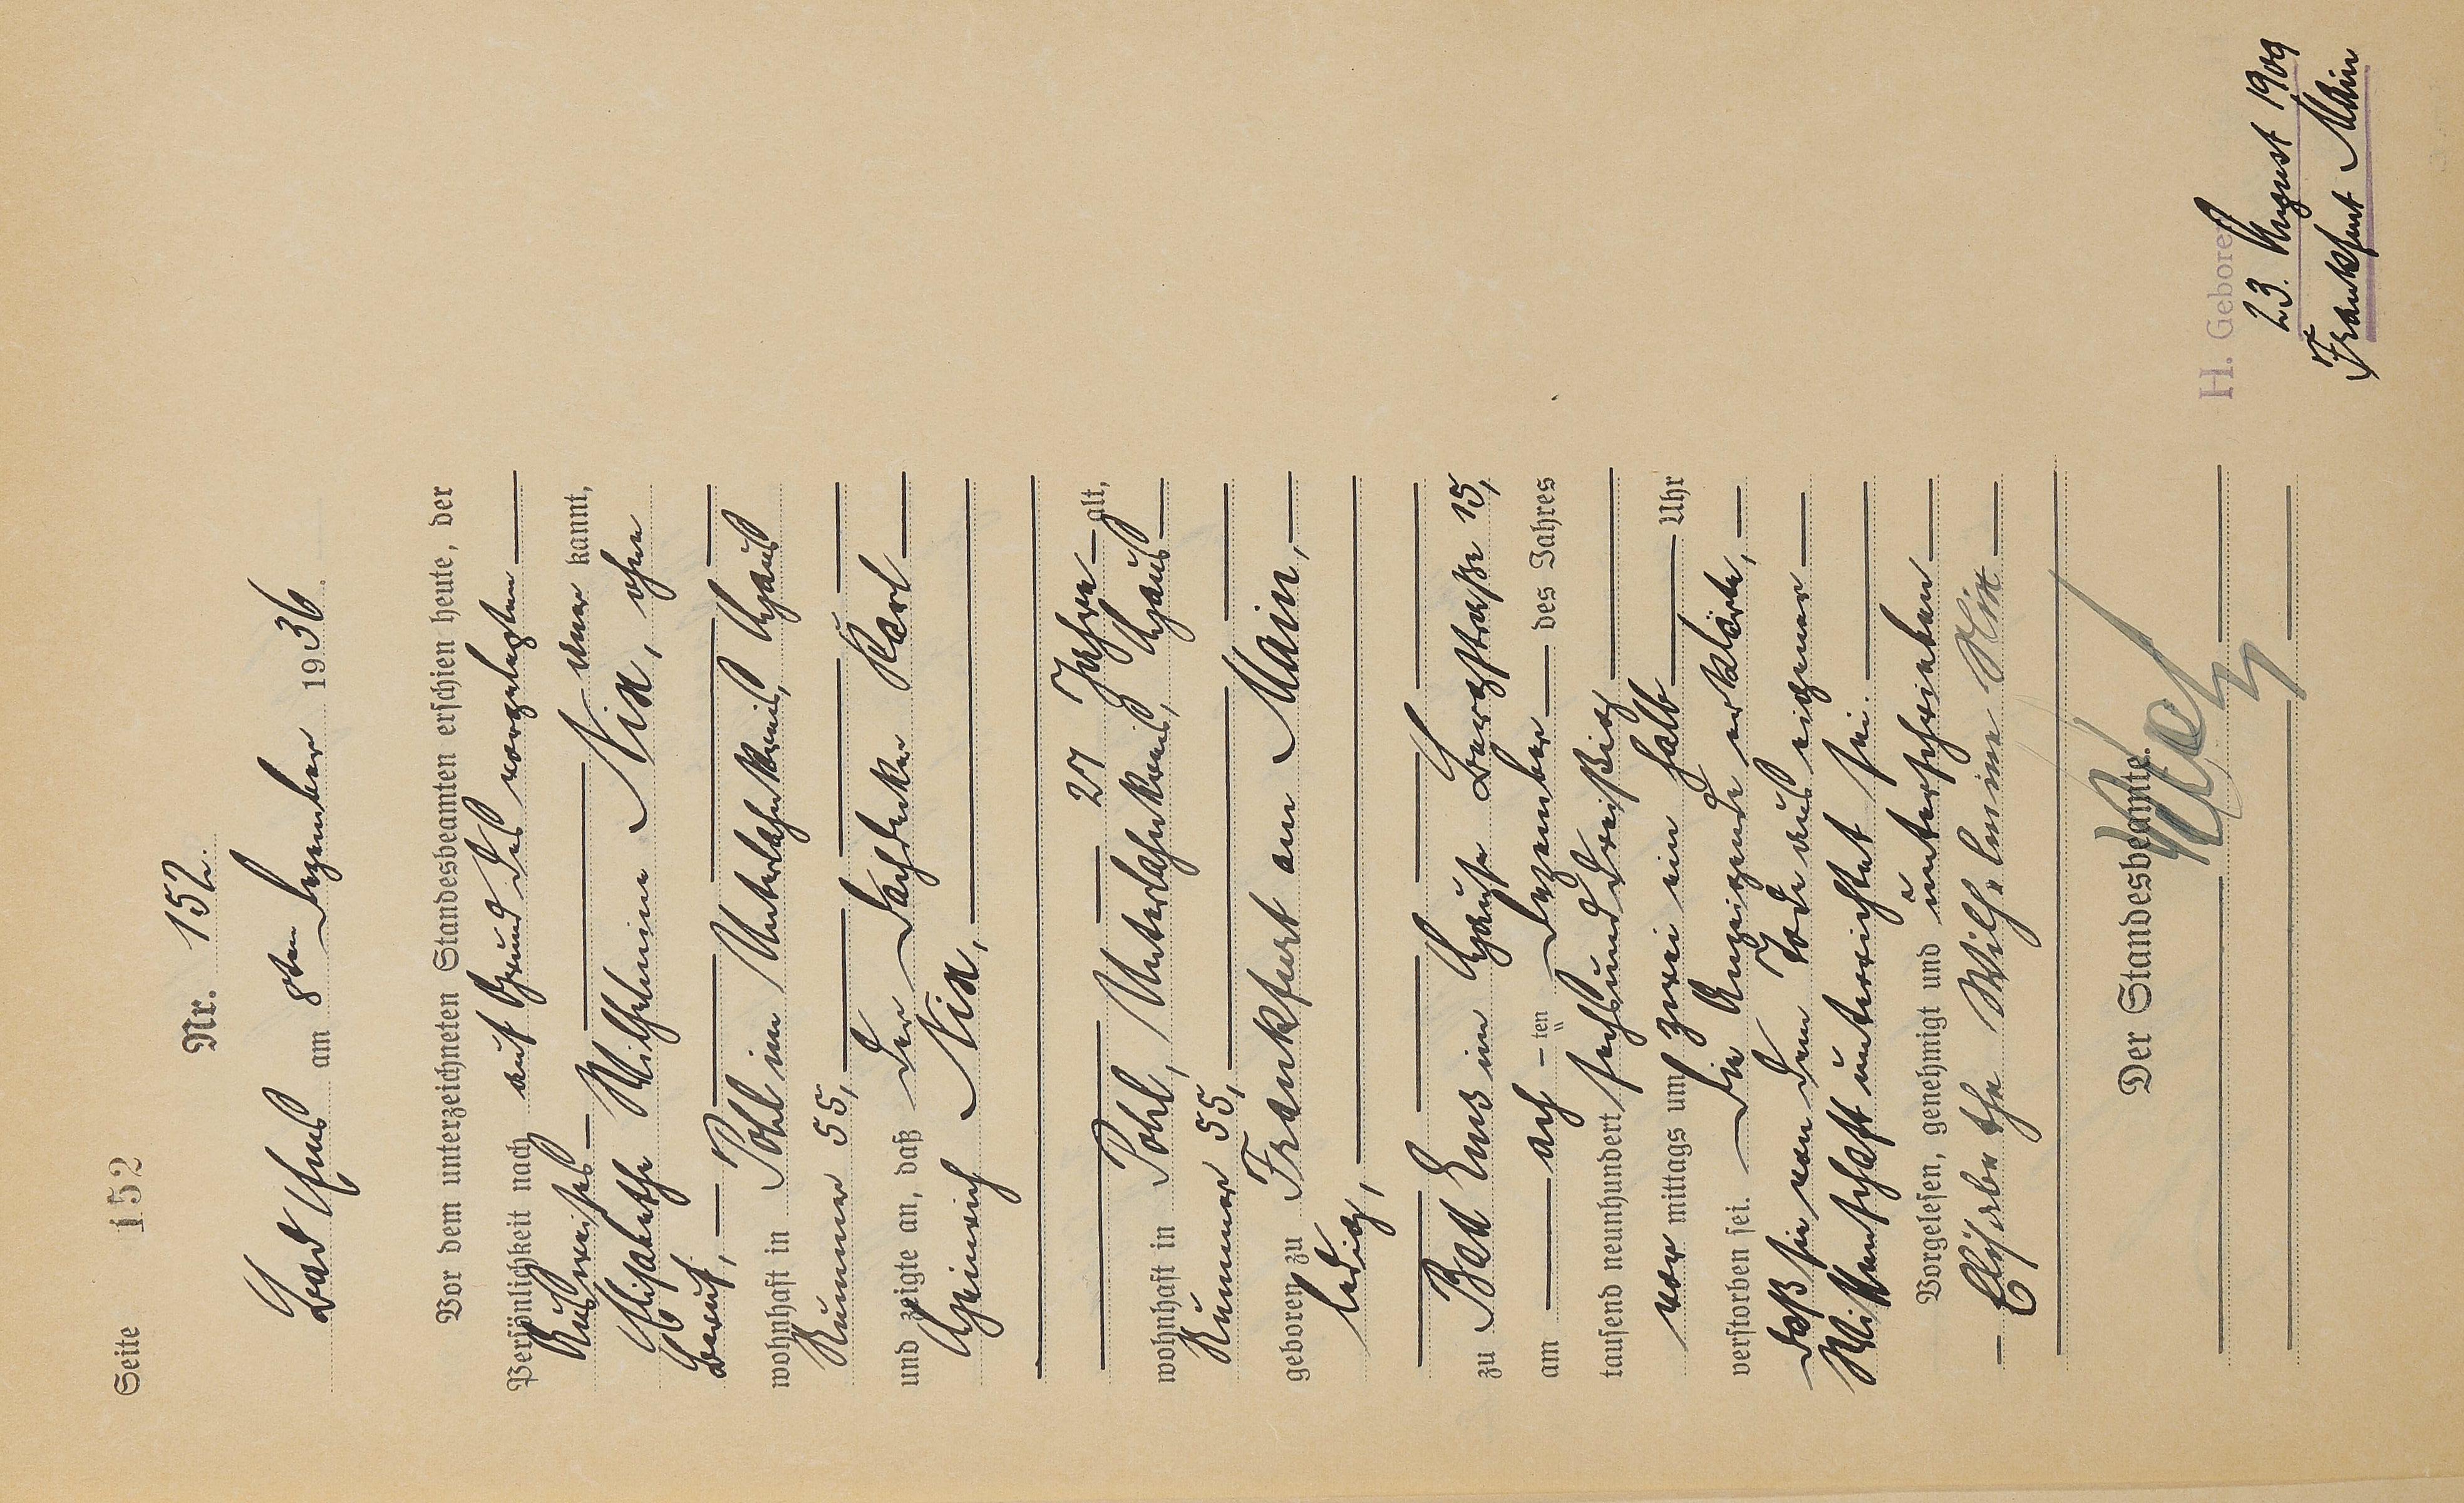 Seite 152
Nr. 152.
Bad Ems am 8ten Dezember 1936.
Vor dem unterzeichneten Standesbeamten erschien heute, der
Persönlichkeit nach auf Grund des vorgelegten
Ausweises — kannt,
Elisabethe Wilhelmine Nix, ohne
Beruf,
wohnhaft in Pohl im Unterlahnkreis, Haus
Nummer 55,
und zeigte an, daß der Dachdecker Karl
Heinrich Nix,
27 Jahre alt,
wohnhaft in Pohl, Unterlahnkreis, Haus
Nummer 55,
geboren zu Frankfurt am Main,
ledig,
zu Bad Ems im Hause Bergstraße 15,
am — ach -ten Dezember des Jahres
tausend neunhundert sechsunddreißig
vor mittags um zwei ein halb Uhr
verstorben sei. Die Anzeigende erklärte,
daß sie von dem Tode aus eigener
Wissenschaft unterrichtet sei.
Vorgelesen, genehmigt und unterschrieben
Elisabethe Wilhelmine Nix
Der Standesbeamte.
H. Geboren
23. August 1909
Frankfurt Main